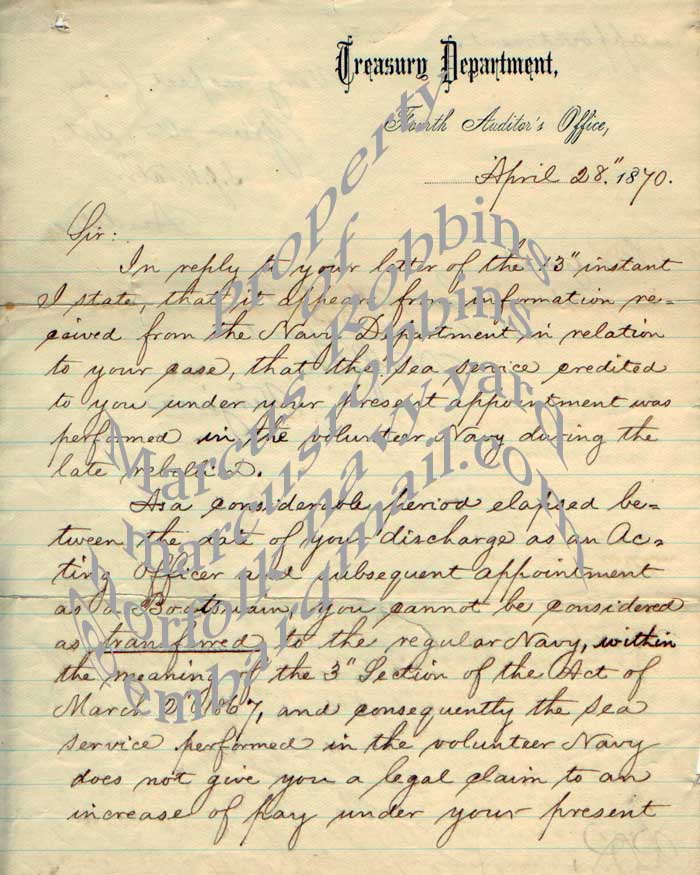 Treasury Department,
Fourth Auditor's Office,
April 28" 1870.
Sir:
In reply to your letter of the 13" instant
I state, that it appears from information re-
ceived from the Navy Department in relation
to your case, that the sea service credited
to you under your present appointment was
performed in the volunteer Navy during the
late rebellion.
As a considerable period elapsed be-
tween the date of your discharge as an Ac-
ting Officer and subsequent appointment
as a Boatswain, you cannot be considered
as transferred to the regular Navy, within
the meaning of the 3" Section of the Act of
March 2, 1867, and consequently the sea
service performed in the volunteer Navy
does not give you a legal claim to an
increase of pay under your present
property
of
Marcus Robbins
marcusrobbins
norfolk navy yard
@embarqmail.com